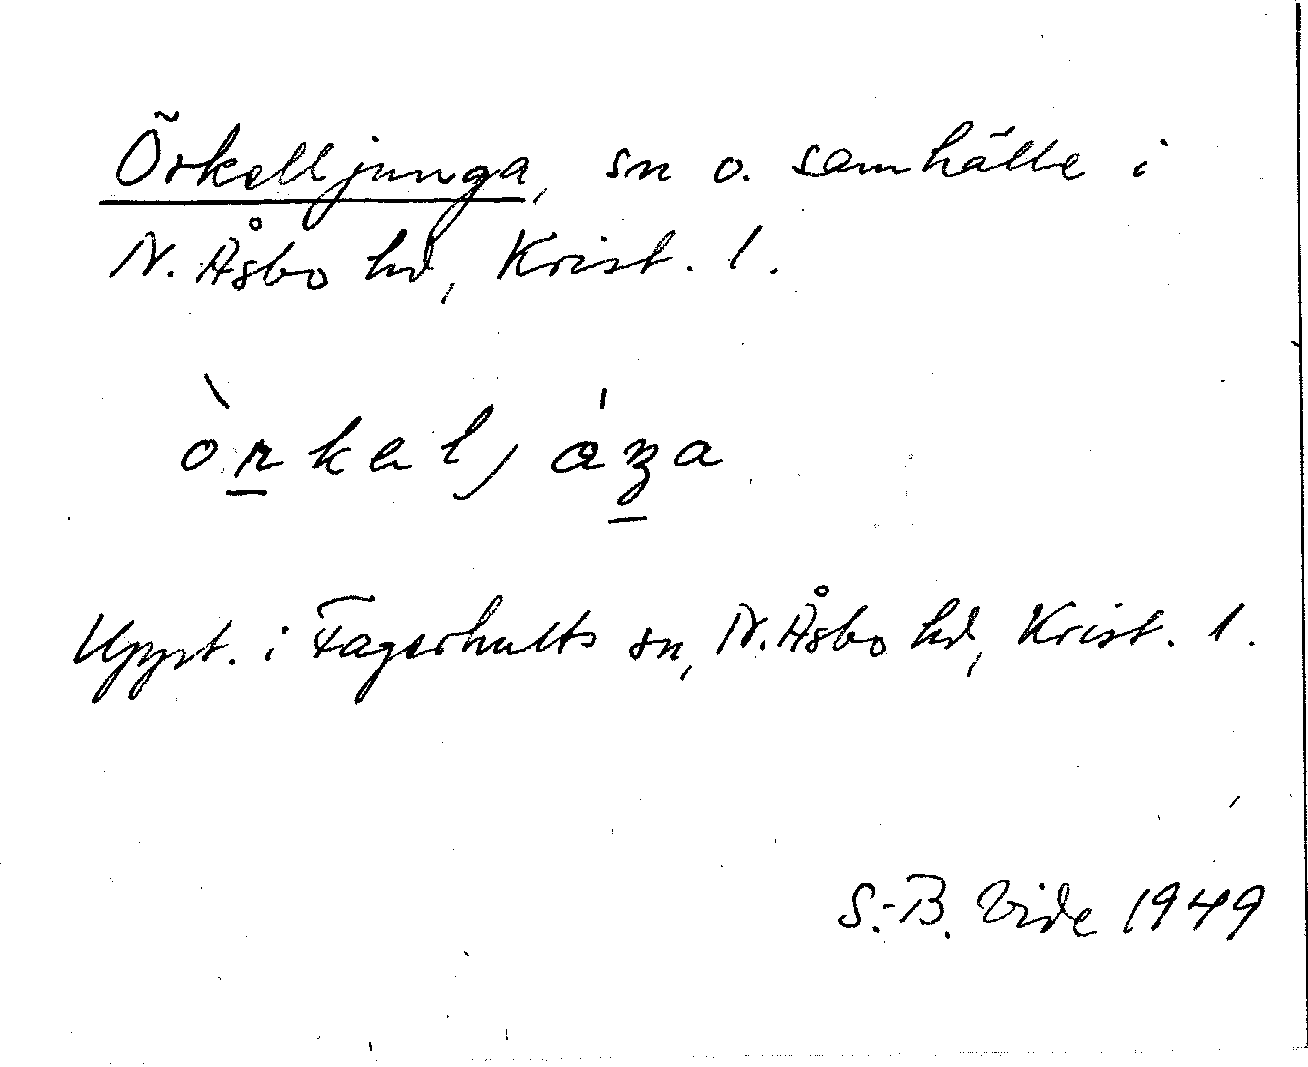 Örkelljunga, sn o. samhälle i
N. Åsbo hd, Krist. l.
Uppt. i Fagerhults sn, N. Åsbo hd, Krist. l.
S.-B. Vide 1949